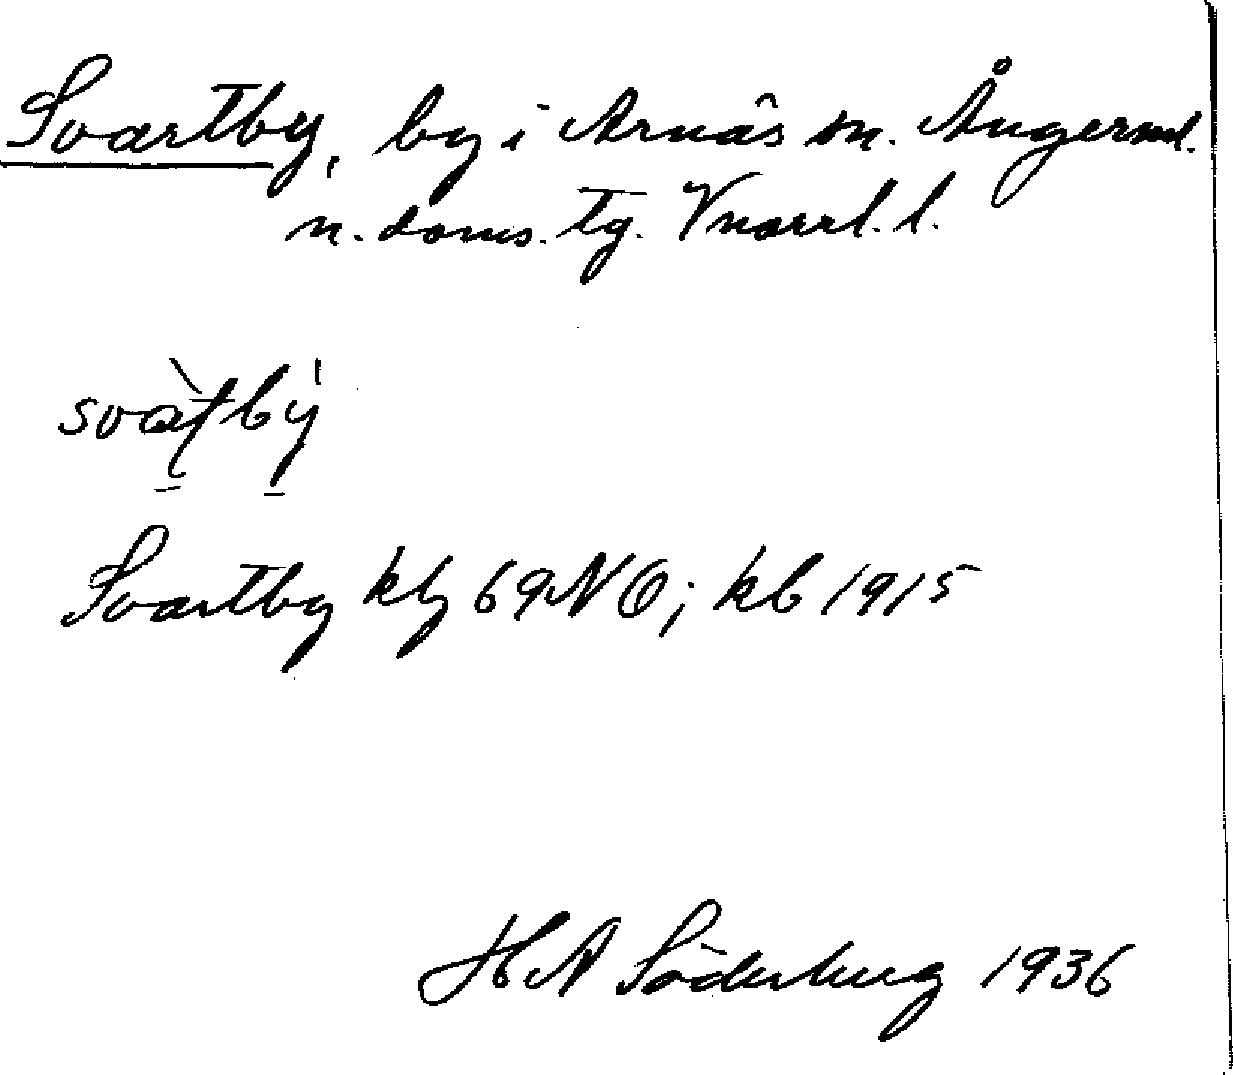 Svartby, by i Arnäs sn. Ångerml.
n. doms. tg. Vnorrl. l.
Svartby kbg 69NO; kb 1915
HA Söderberg 1936